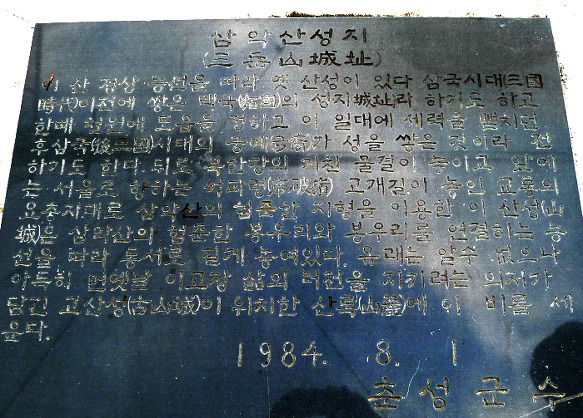 삼악산성지
(三岳山城址)
이 산 정상 능선을 따라 옛 산성이 있다 삼국시대三國
時代이전에 쌓은 맥국(貊國)의 성지城址라 하기도 하고
한때 철원에 도읍을 정하고 이 일대에 세력을 뻗치던
후삼국後三國시대의 궁예弓裔가 성을 쌓은 것이라 전
하기도 한다. 뒤로 북한강의 거친 물결이 놓이고 앞에
는 서울로 향하는 고개길이 놓인 교통의
요충지대로 삼악산의 험준한 지형을 이용한 이 산성山
城은 삼악산의 험준한 봉우리와 봉우리를 연결하는 능
선을 따라 동서로 길게 놓여있다. 유래는 알수 없으나
아득히 먼옛날 이고장 삶의 터전을 지키려는 의지가
담긴 고산성(古山城)이 위치한 산록(山麓)에 이 비를 세
운다.
1984. 8. 1
춘성군수